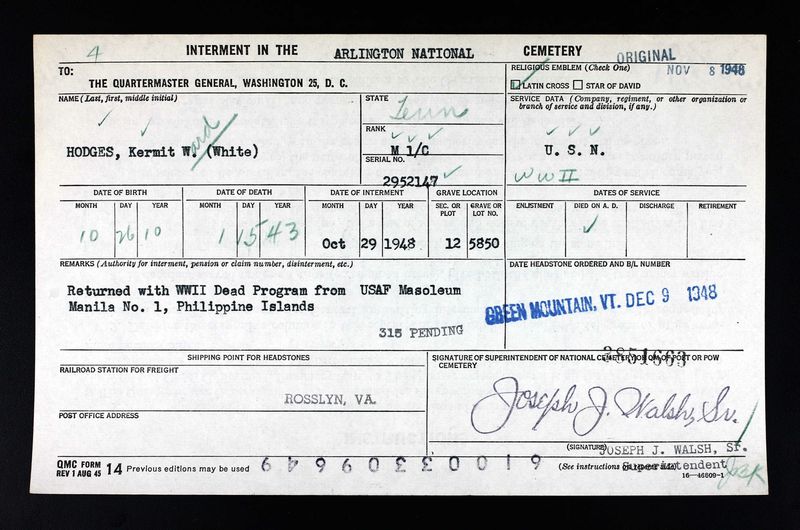 4
INTERMENT IN THE ARLINGTON NATIONAL CEMETERY
ORIGINAL
NOV 8 1948
TO:
THE QUARTERMASTER GENERAL, WASHINGTON 25, D. C.
RELIGIOUS EMBLEM (Check One)
LATIN CROSS STAR OF DAVID
NAME (Last, first, middle initial)
HODGES, Kermit W. (White)
ard
STATE
Tenn
RANK
M 1/C
SERIAL NO.
2952147
SERVICE DATA (Company, regiment, or other organization or
branch of service and division, if any.)
U. S. N.
WW II
DATE OF BIRTH DATE OF DEATH DATE OF INTERMENT GRAVE LOCATION DATES OF SERVICE
MONTH DAY YEAR MONTH DAY YEAR MONTH DAY YEAR SEC. OR PLOT GRAVE OR LOT NO. ENLISTMENT DIED ON A. D. DISCHARGE RETIREMENT
10 26 10 1 15 43 Oct 29 1948 12 5850
REMARKS (Authority for interment, pension or claim number, disinterment, etc.)
Returned with WWII Dead Program from USAF Masoleum
Manila No. 1, Philippine Islands
315 PENDING
DATE HEADSTONE ORDERED AND B/L NUMBER
GREEN MOUNTAIN, VT. DEC 9 1948
3851663
SHIPPING POINT FOR HEADSTONES
RAILROAD STATION FOR FREIGHT
ROSSLYN, VA.
POST OFFICE ADDRESS
SIGNATURE OF SUPERINTENDENT OF NATIONAL CEMETERY OR QM OF POST OR POW
CEMETERY
Joseph J. Walsh, Sr.
(SIGNATURE)
JOSEPH J. WALSH, Sr.
Superintendent
QMC FORM
REV 1 AUG 45 14 Previous editions may be used
6100330964 9
(See instructions on
16—46609-1